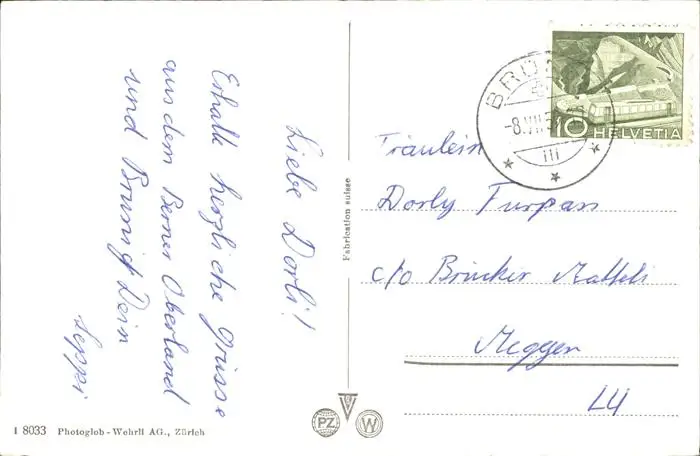 Liebe Dorli!
Erhalt herzliche Grüsse
aus dem Berner Oberland
und Brünig Dein
Seppi
Fräulein
Dorly Furpan
c/o Brücker Mattli
Meggen
LU
HELVETIA
10
BRÜ
-8.VII.5
Fabrication suisse
PZ
W
1 8033 Photoglob-Wehrli AG., Zürich